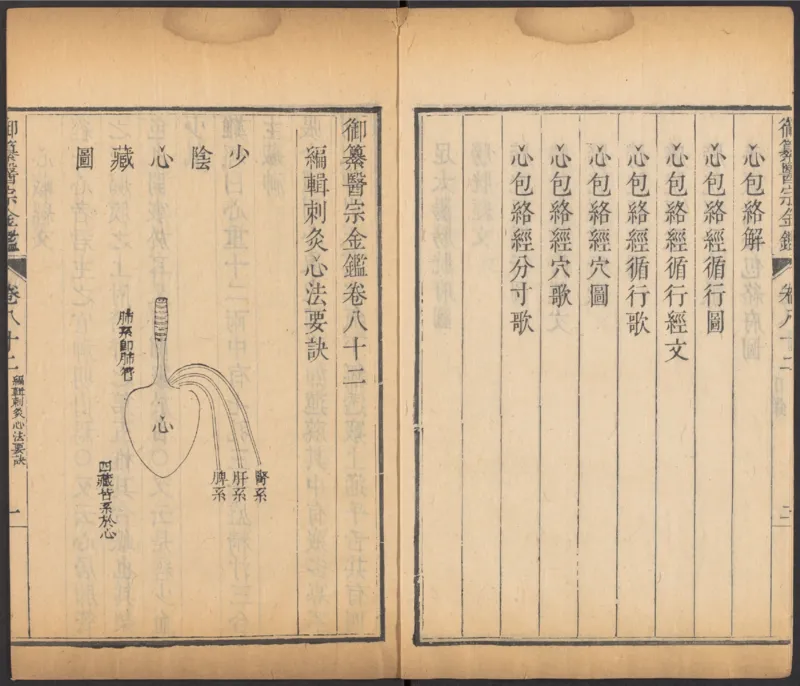 御纂醫宗金鑑
卷八十二
二
心包絡解
心包絡經循行圖
心包絡經循行經文
心包絡經循行歌
心包絡經穴圖
心包絡經穴歌
心包絡經分寸歌
御纂醫宗金鑑卷八十二
編輯刺灸心法要訣
少陰心藏圖
肺系即肺管
心
腎系
肝系
脾系
四藏皆系於心
御纂醫宗金鑑
卷八十二
編輯刺灸心法要訣
一